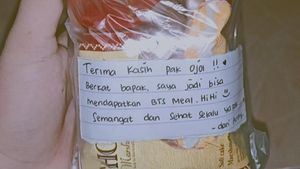 Terima kasih pak ojol !! ♥
Berkat bapak, saya jadi bisa
mendapatkan BTS Meal. HiHi
Semangat dan sehat selalu ya
- dari